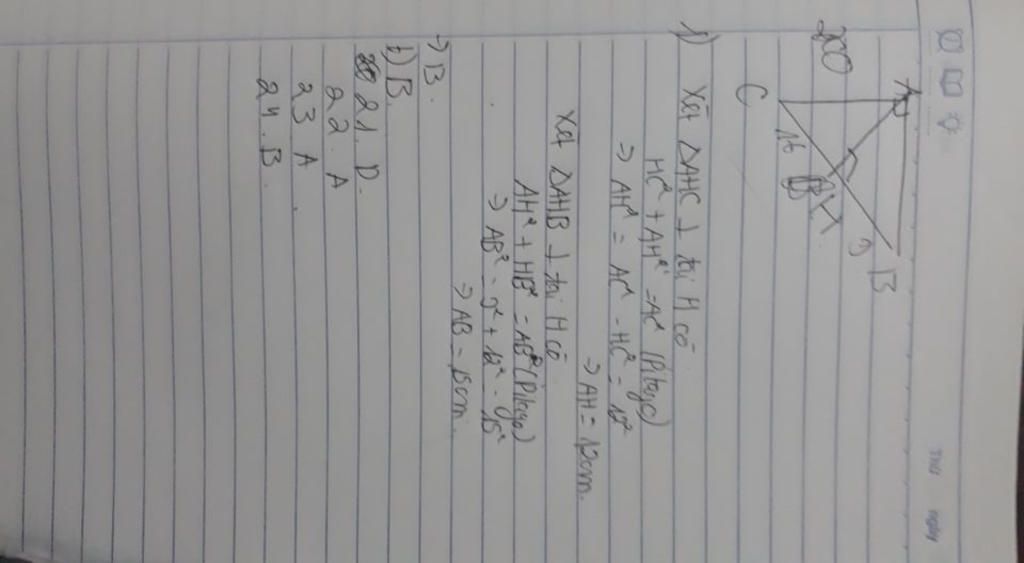 Thứ ngày
A
B
C
9
16
H
1) Xét ΔAHC ⊥ tại H có
HC² + AH² = AC² (Pitago)
⇒ AH² = AC² - HC² = 12²
⇒ AH = 12cm.
Xét ΔAHB ⊥ tại H có
AH² + HB² = AB² (Pitago)
⇒ AB² = 9² + 12² = 15²
⇒ AB = 15cm.
→ B.
b) B.
21. D.
22. A
23 A.
24. B.